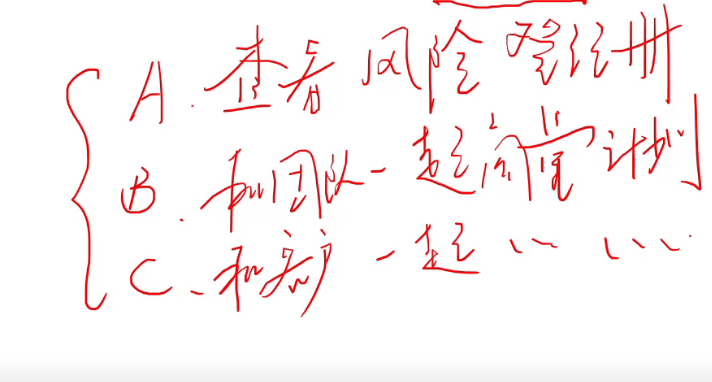 A. 查看风险登记册
B. 和团队一起商量计划
C. 和客户一起 …… ……